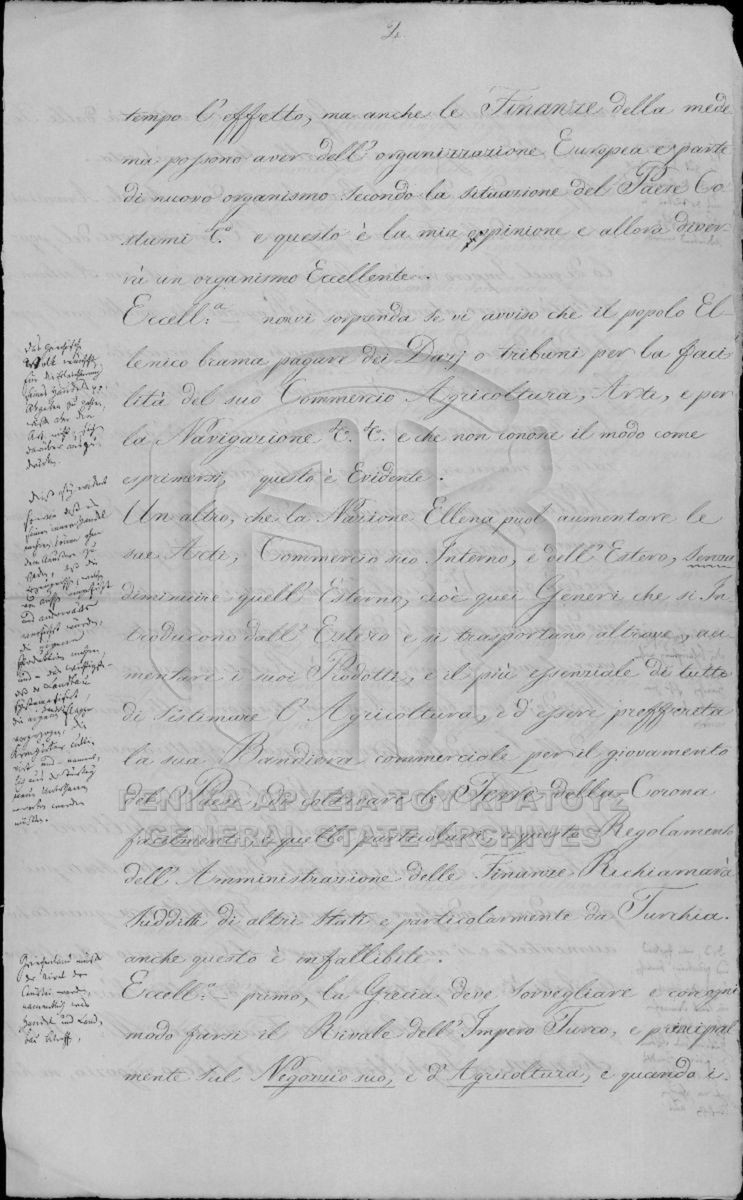 2.
tempo l'effetto, ma anche le Finanze della mede
ma possono aver dell' organizzazione Europea e parte
di nuovo organismo secondo la situazione del Paese Co
stumi &c. e questo è la mia oppinione e allora diver-
rà un organismo Eccellente.
Eccell:a non vi sorprenda se vi avviso che il popolo El-
lenico brama pagare dei Dazj o tribuni per la faci
lità del suo Commercio Agricoltura, Arti, e per
la Navigazione &c. &c. e che non conose il modo come
esprimersi, questo è Evidente.
Un altro, che la Nazione Ellena puol aumentare le
sue Arti, Commercio suo Interno, e dell' Estero, senza
diminuire quell' Esterno, cioè quei Generi che si In
troducono dall' Estero e si trasportano altrove, au
mentare i suoi Prodotti, e il più essenziale di tutto
di sistemare l' Agricoltura, e d'essere prefferita
la sua Bandiera commerciale per il giovamento
del Paese, di coltivare le Terre della Corona
facilmente e quelle particolari, e questo Regolamento
dell' Amministrazione delle Finanze Richiamarà
Sudditi di altri Stati e particolarmente da Turchia.
anche questo è infallibile.
Eccell:a primo, la Grecia deve sorvegliare e con ogni
modo farsi il Rivale dell' Impero Turco, e principal
mente sul Negozio suo, e d'Agricoltura, e quando i-
Das Griechische
Volk wünscht
für die Erleichterung
seines Handels pp
Abgaben zu zahlen,
weiß aber die
Art nicht, sich
darüber auszu-
drücken.
Griechenland müsse
der Rival der
Türkei werden,
namentlich was
Handel und Land-
bau betrifft,
ΓΕΝΙΚΑ ΑΡΧΕΙΑ ΤΟΥ ΚΡΑΤΟΥΣ
GENERAL STATE ARCHIVES